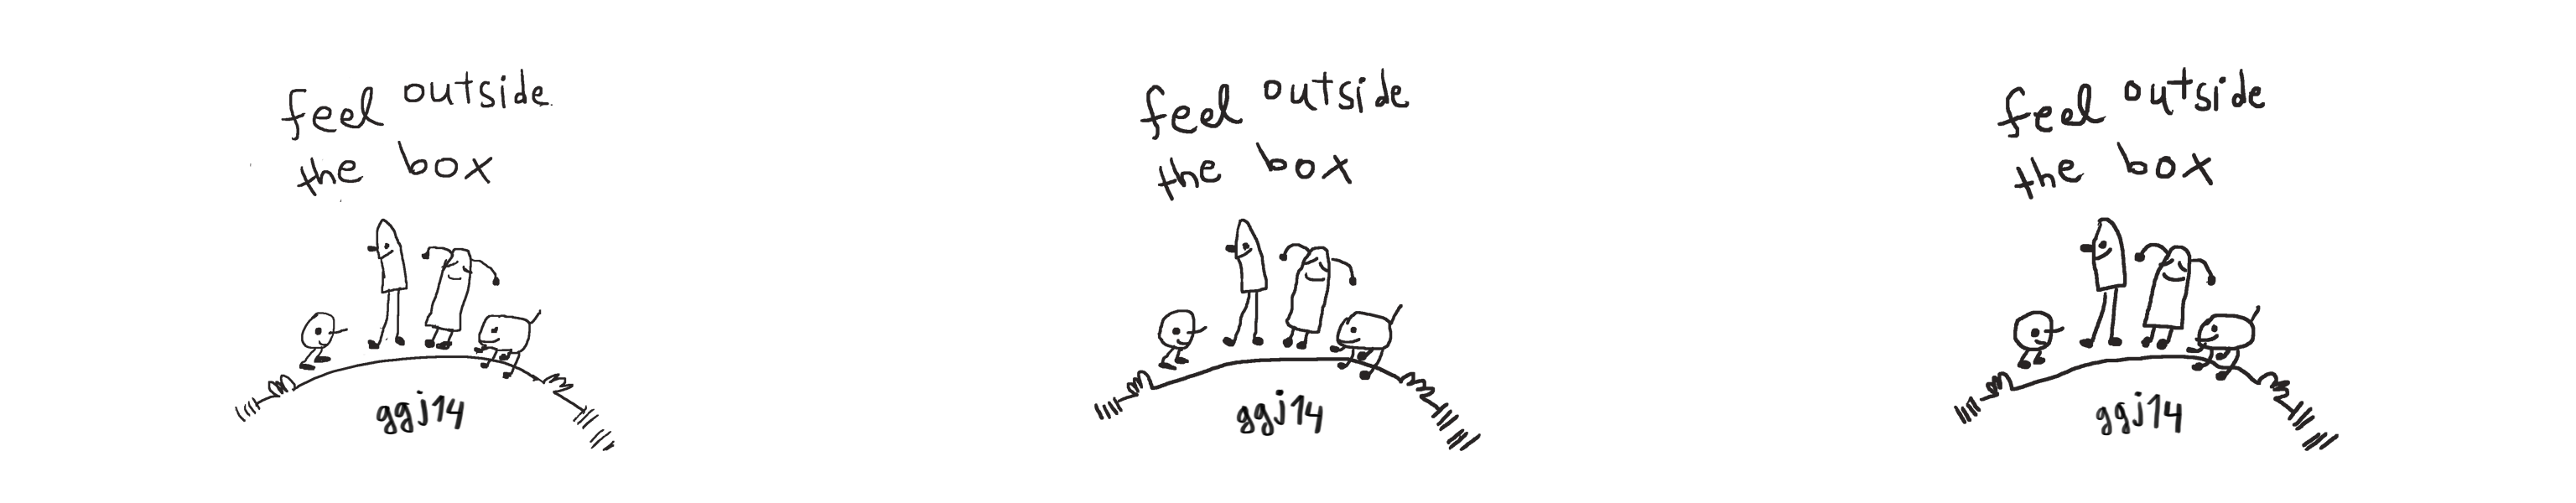 feel outside
the box
ggj14
feel outside
the box
ggj14
feel outside
the box
ggj14